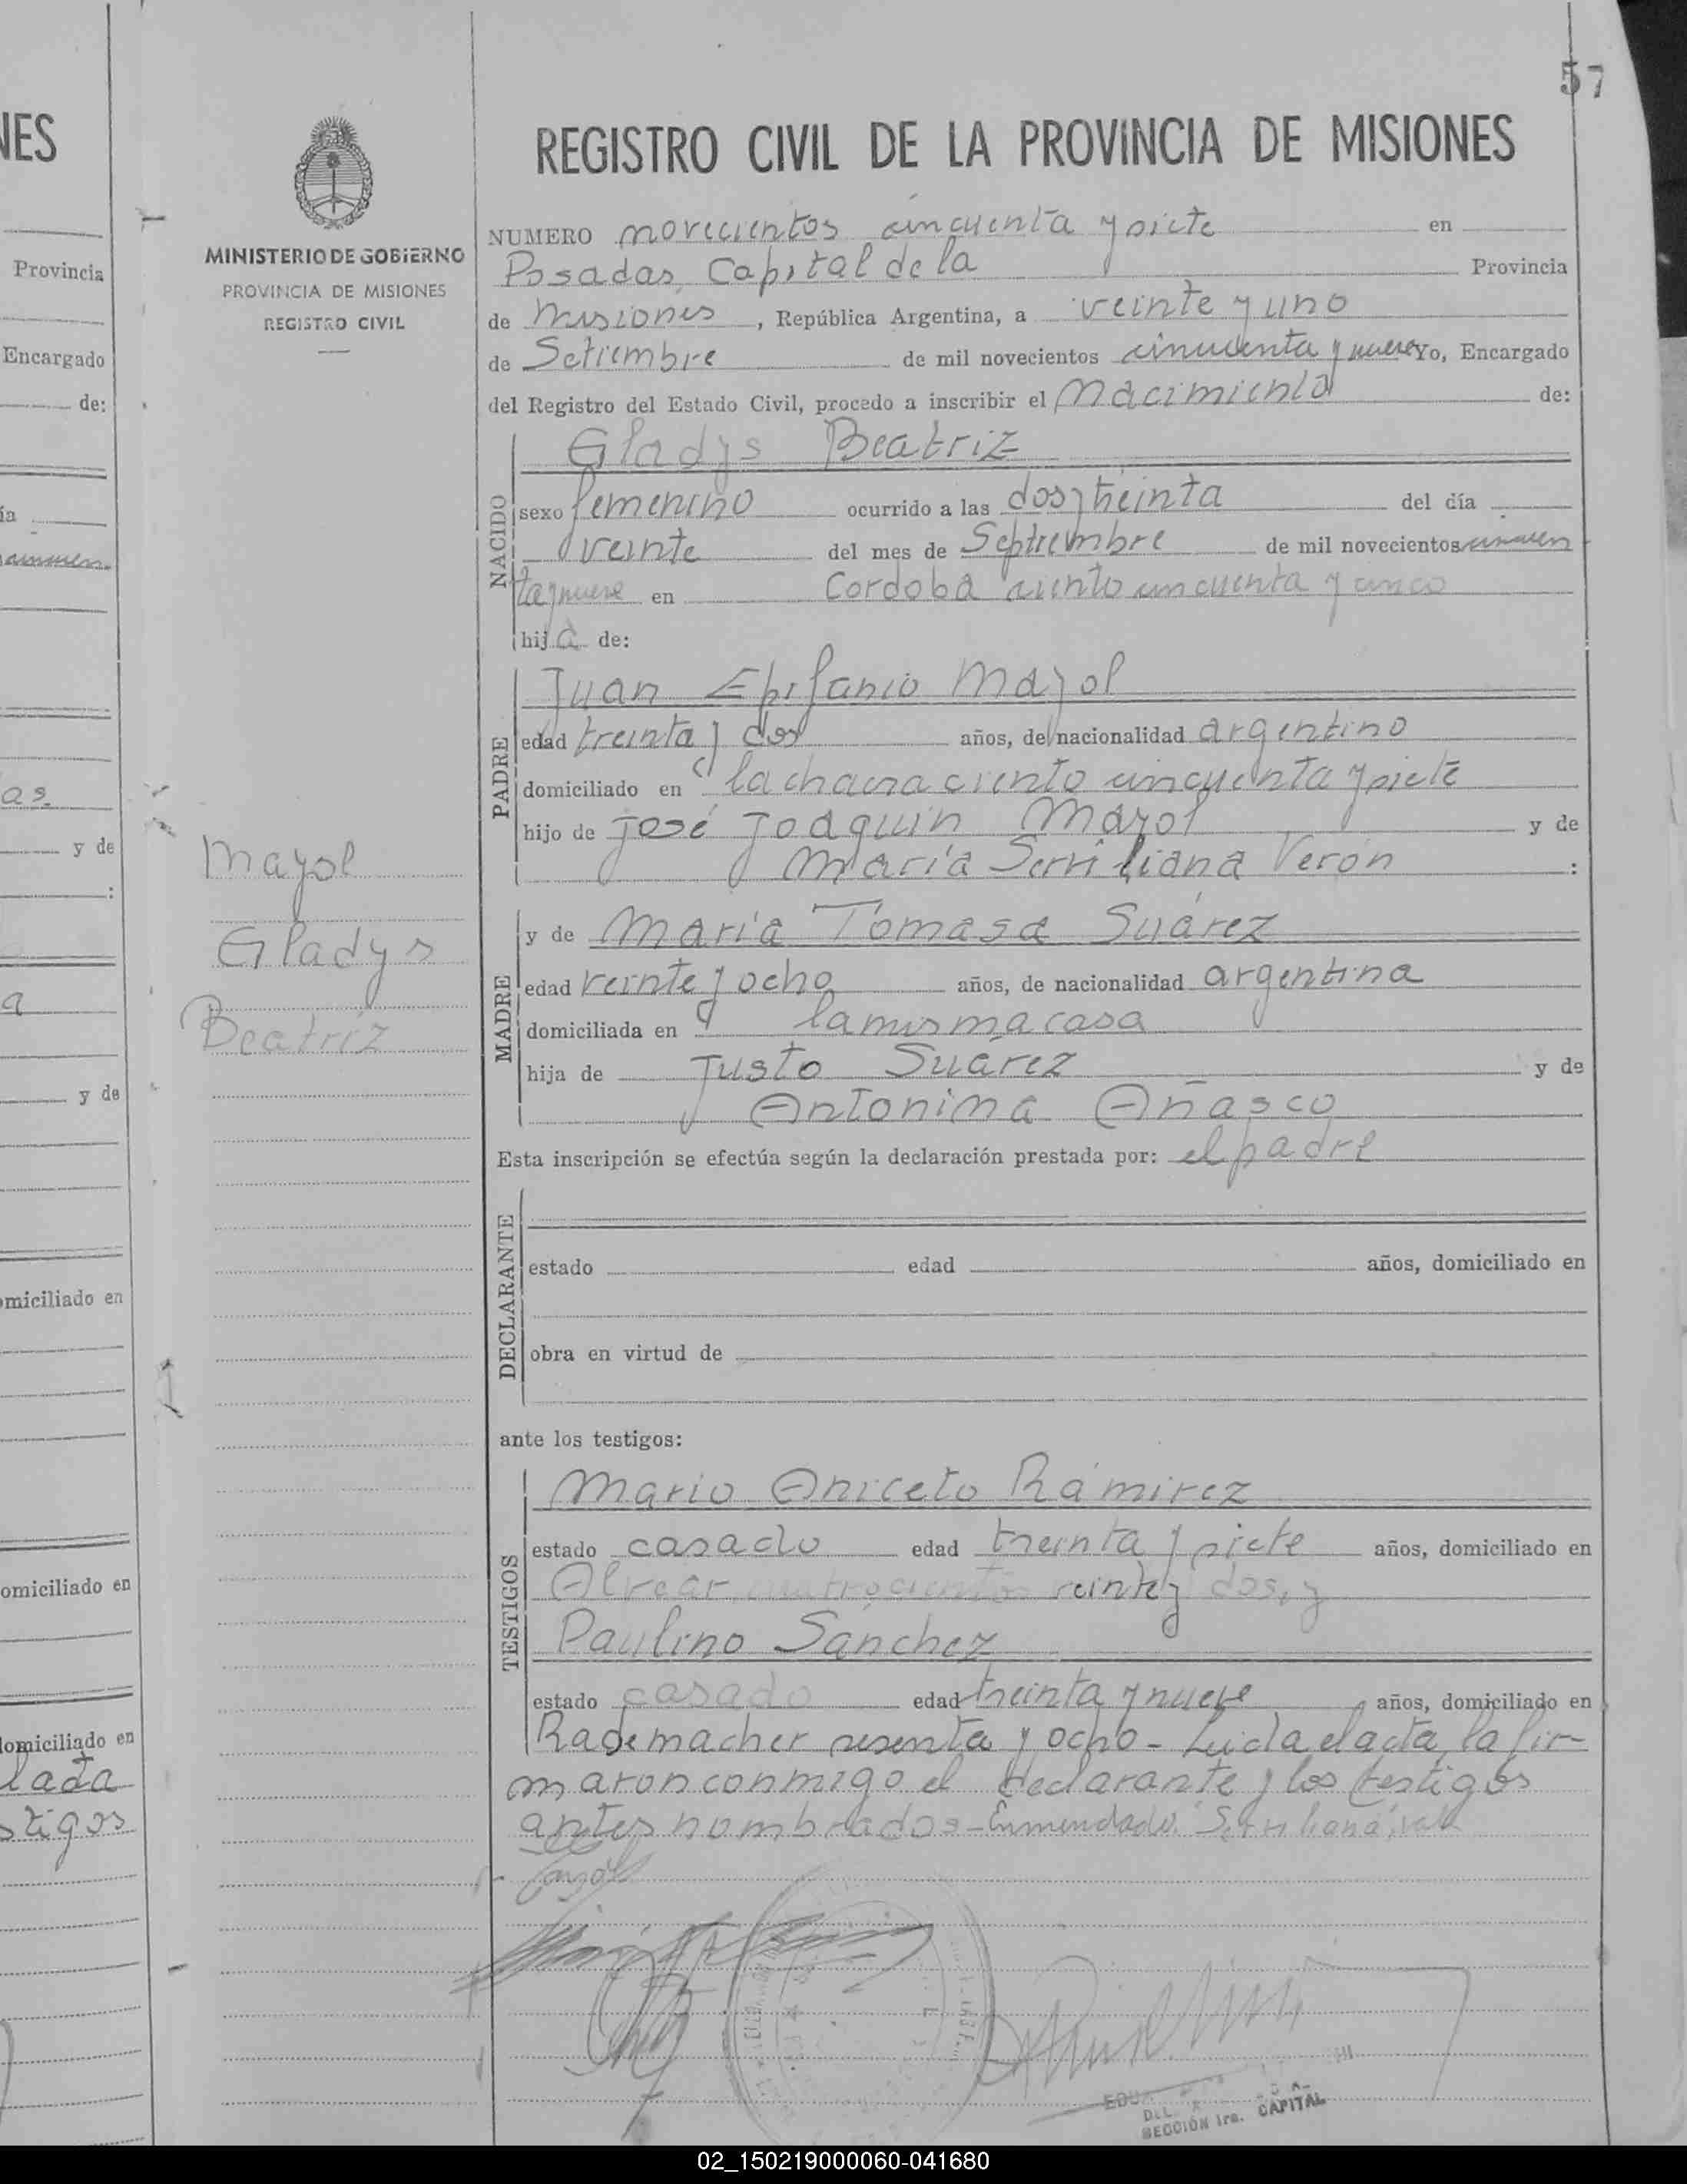 57
REGISTRO CIVIL DE LA PROVINCIA DE MISIONES
MINISTERIO DE GOBIERNO
PROVINCIA DE MISIONES
REGISTRO CIVIL
NUMERO novecientos cincuenta y siete en
Posadas, Capital de la Provincia
de Misiones, República Argentina, a veinte y uno
de Setiembre de mil novecientos cincuenta y nueve Yo, Encargado
del Registro del Estado Civil, procedo a inscribir el Nacimiento de:
NACIDO
Gladys Beatriz
sexo femenino ocurrido a las dos y treinta del día
veinte del mes de Septiembre de mil novecientos cincuen
ta y nueve en Cordoba ciento cincuenta y cinco
hija de:
PADRE
Juan Epifanio Mayol
edad treinta y dos años, de nacionalidad argentino
domiciliado en la chacra ciento cincuenta y siete
hijo de José Joaquin Mayol y de
María Serviliana Verón :
Mayol
Gladys
Beatríz
MADRE
y de María Tomasa Suárez
edad veinte y ocho años, de nacionalidad argentina
domiciliada en la misma casa
hija de Justo Suárez y de
Antonina Añasco
Esta inscripción se efectúa según la declaración prestada por: el padre
DECLARANTE
estado edad años, domiciliado en
obra en virtud de
ante los testigos:
TESTIGOS
Mario Aniceto Rámirez
estado casado edad treinta y siete años, domiciliado en
Alvear cuatrocientos veinte y dos, y
Paulino Sánchez
estado casado edad treinta y nueve años, domiciliado en
Rademacher sesenta y ocho - Leida el acta, la fir-
maron conmigo el declarante y los testigos
antes nombrados - Enmendado: "Serviliana", vale
SECCIÓN 1ra. CAPITAL
NES
Provincia
Encargado
de:
as
y de
:
a
y de
omiciliado en
omiciliado en
domiciliado en
lada
stigos
02_150219000060-041680